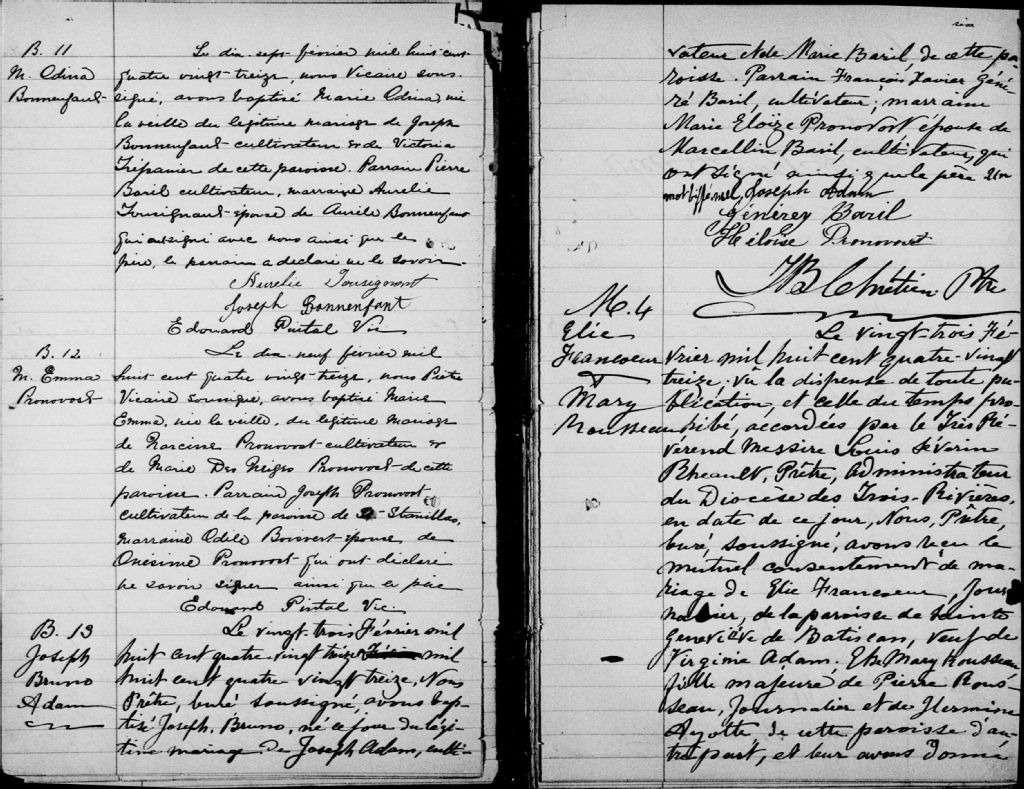 B. 11
M. Odina
Bonnenfant
Le dix-sept février mil huit cent
quatre vingt-treize, nous Vicaire sous-
signé, avons baptisé Marie Odina, née
la veille du légitime mariage de Joseph
Bonnenfant cultivateur et de Victoria
Trépanier de cette paroisse. Parrain Pierre
Baril cultivateur, marraine Aurelie
Tousignant épouse de Aurèle Bonnenfant
qui a signé avec nous ainsi que le
père, le parrain a déclaré ne le savoir.
Aurelie Tousignant
Joseph Bonnenfant
Edouard Pintal Vic
B. 12
M. Emma
Pronovost
Le dix-neuf février mil
huit cent quatre vingt-treize, nous Prêtre
Vicaire soussigné, avons baptisé Marie
Emma, née la veille, du légitime mariage
de Narcisse Pronovost cultivateur et
de Marie Des Neiges Pronovost de cette
paroisse. Parrain Joseph Pronovost
cultivateur de la paroisse de St-Stanislas,
marraine Odile Boisvert épouse de
Onésime Pronovost qui ont déclaré
ne savoir signer ainsi que le père
Edouard Pintal Vic
B. 13
Joseph
Bruno
Adam
Le vingt-trois Février mil
huit cent quatre-vingt treize mil
huit cent quatre vingt treize, Nous
Prêtre, Curé soussigné, avons bap-
tisé Joseph, Bruno, né ce jour du légi-
time mariage de Joseph Adam, culti-
vateur et de Marie Baril, de cette pa-
roisse. Parrain François Xavier Géné-
ré Baril, cultivateur; marraine
Marie Eloïze Pronovost épouse de
Marcellin Baril, cultivateur, qui
ont signé ainsi que le père Un
mot biffé nul, Joseph Adam
Généréy Baril
Héloïse Pronovost
JB Chrétien Ptre
M. 4
Elie
Francoeur
&
Mary
Rousseau
Le vingt-trois Fé-
vrier mil huit cent quatre-vingt
treize. vu la dispense de toute pu-
blication, et celle du temps pro-
hibé, accordées par le Très Ré-
vérend Messire Louis Séverin
Rheault, Prêtre, Administrateur
du Diocèse des Trois-Rivières,
en date de ce jour, Nous, Prêtre,
Curé, soussigné, avons reçu le
mutuel consentement de ma-
riage de Elie Francoeur, jour-
nalier, de la paroisse de Sainte
Geneviève de Batiscan, veuf de
Virginie Adam. Et de Mary Rousseau
fille majeure de Pierre Rous-
seau, journalier et de Hermine
Ayotte, de cette paroisse d'au-
tre part, et leur avons donné